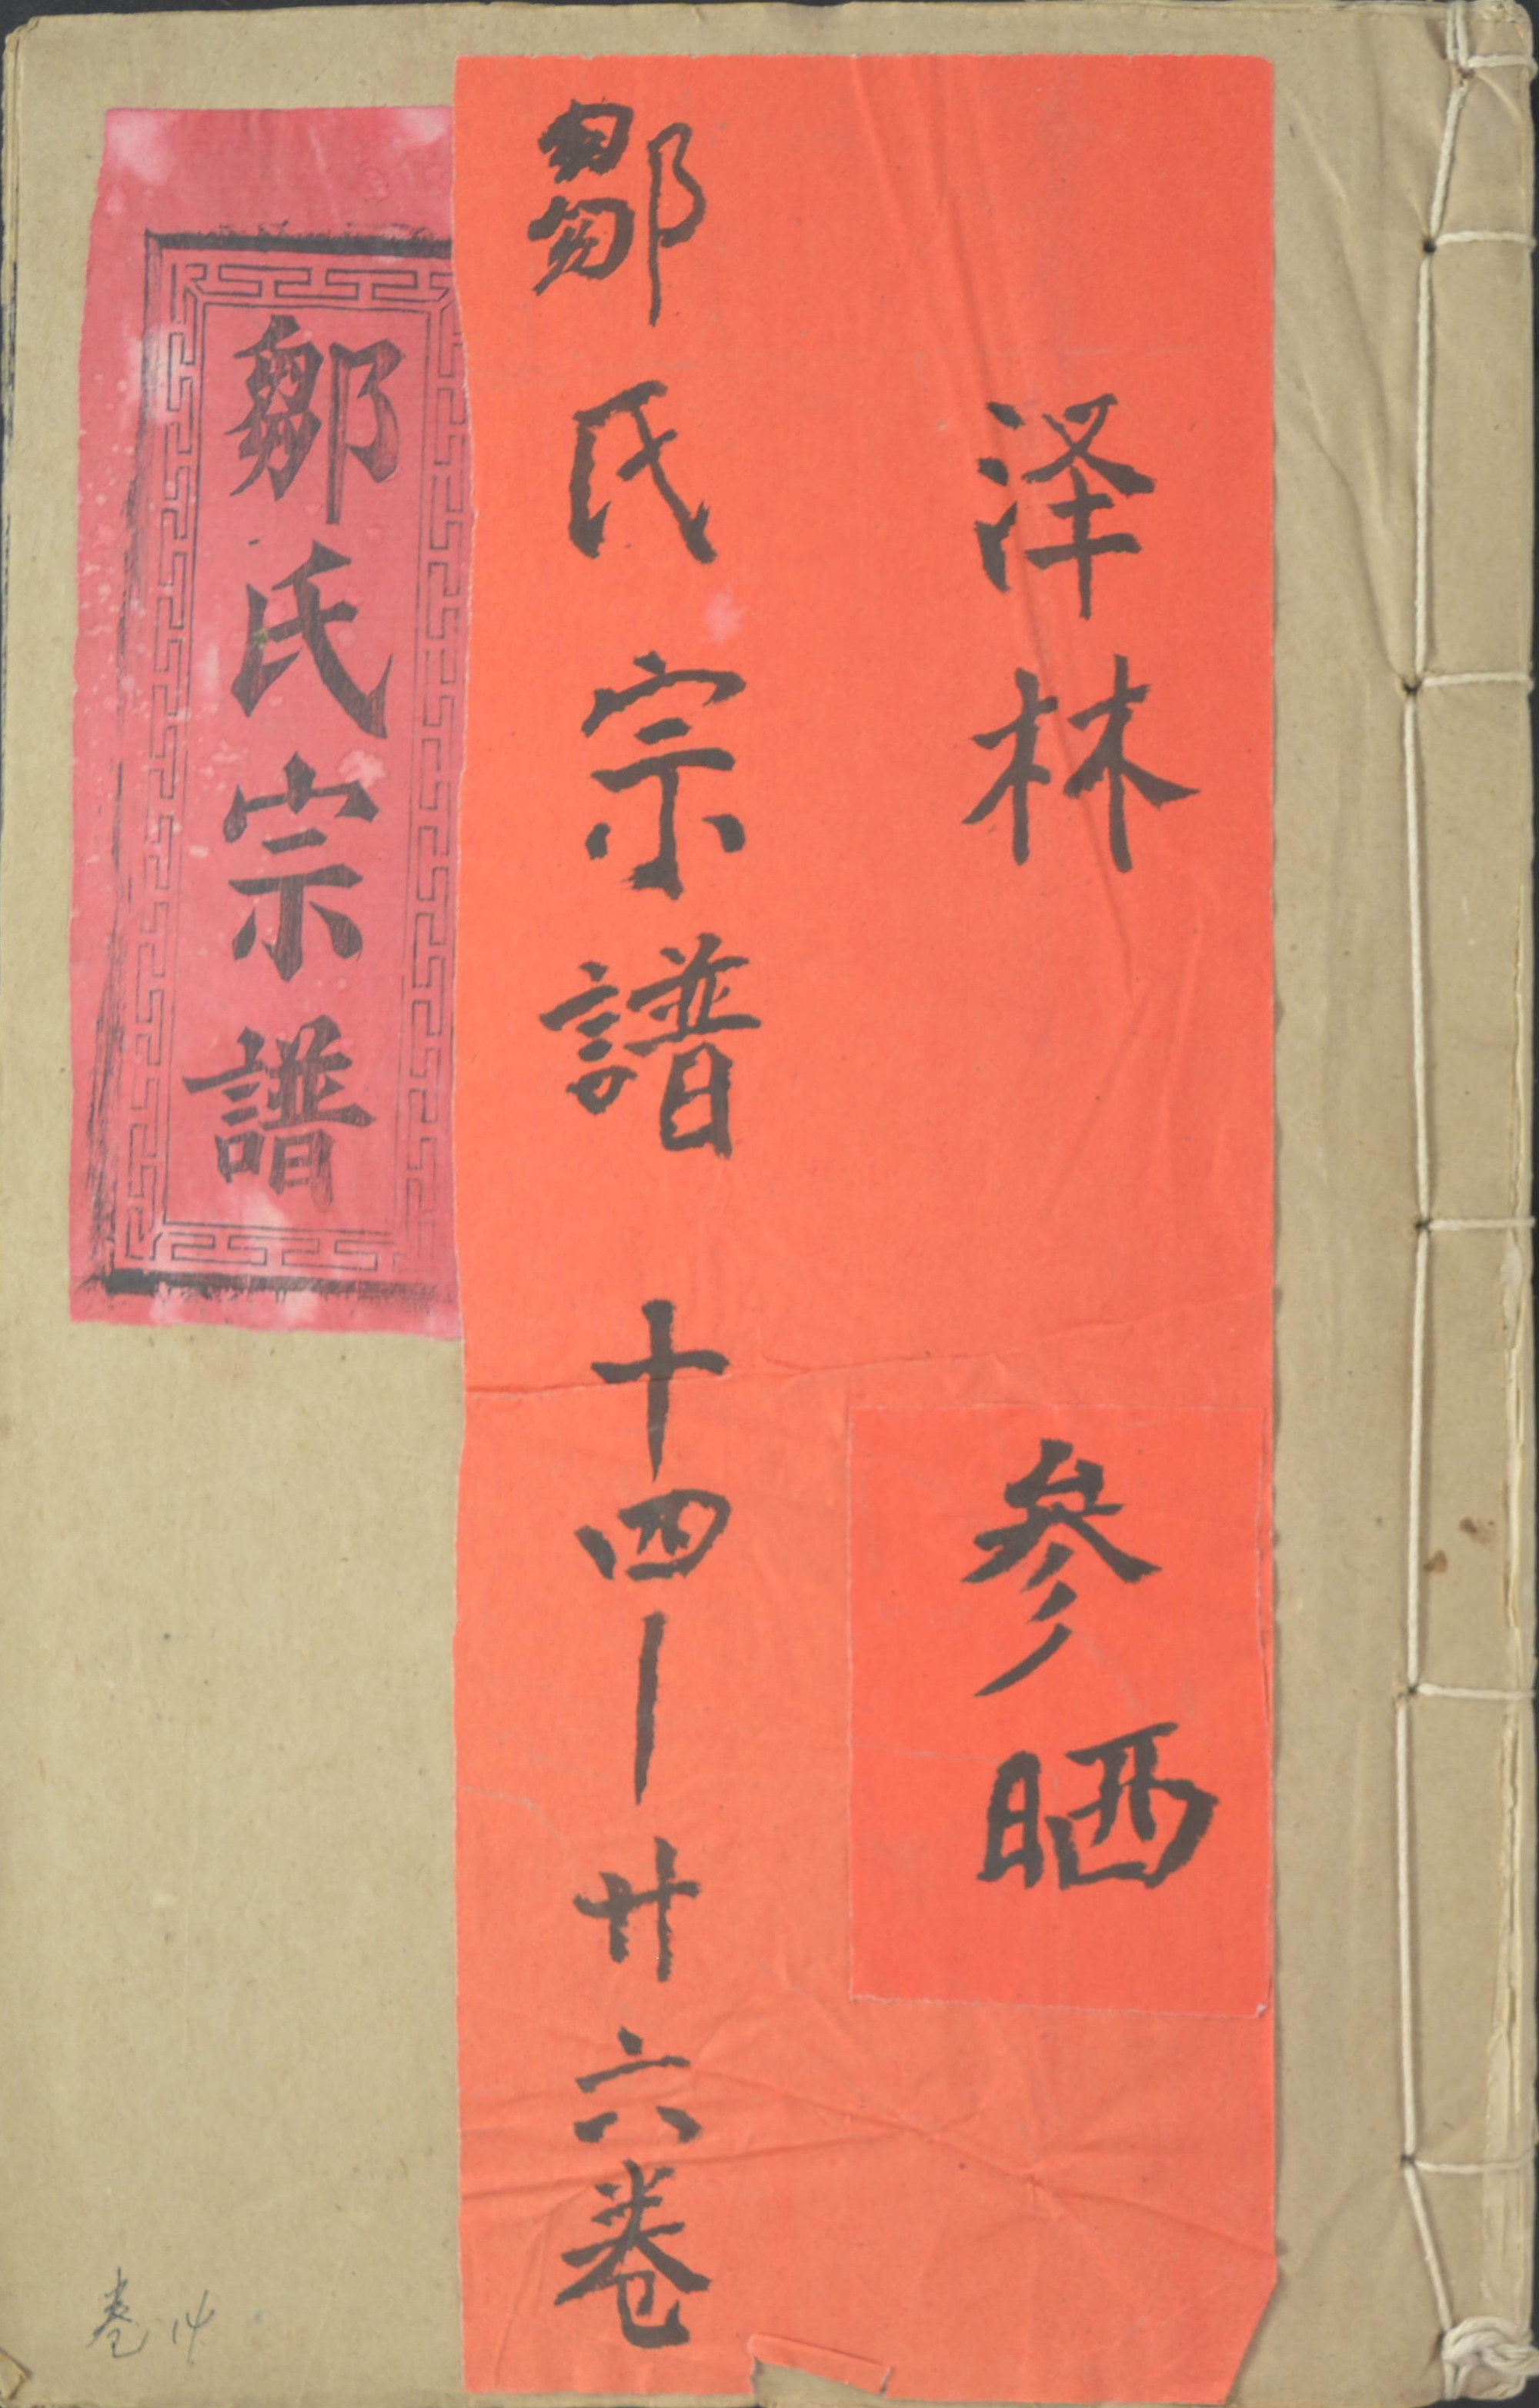 泽林 参晒
鄒氏宗譜 十四—廿六卷
鄒氏宗譜
卷14